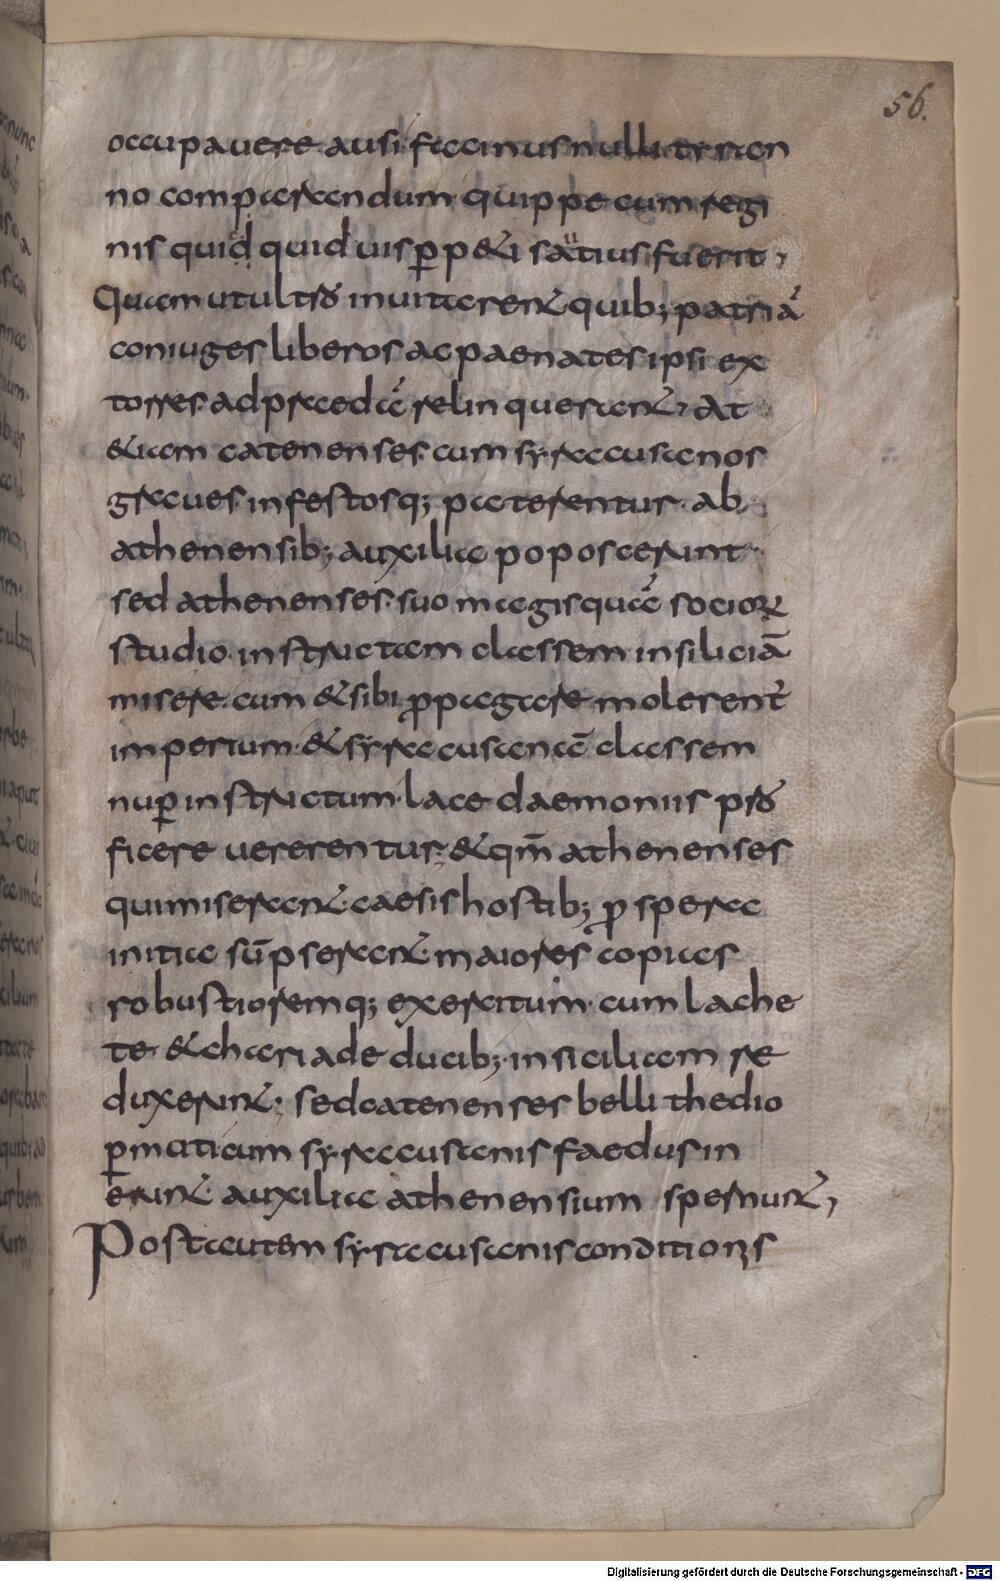 56.
occupauere ausi. facinus nulli tyran
no comparandum. quippe cum regi
nis quid quid uis perp&i satius fuerit;
Quam ut ultro inuitarent quib; patriā
coniuges liberos ac paenates ipsi ex
torres ad praedā relinquerent; At
&iam catenenses cum syracusanos
graues infestosq; paterentur. ab
atheniensib; auxilia poposcerunt.
sed athenenses. suo magis quā socior̄
studio instructam classem in siliciā
misere. cum & sibi propagare molerent
imperium. & syracusanā classem
nuper instructum. lacedaemoniis pro
ficere uererentur; & qm̄ athenenses
qui miserant. caesis hostib; prospera
initia sūpserant. maiores copias
robustioremq; exercitum. cum lache
te & chariade ducib; in siciliam re
duxerunt; sed catenenses belli thedio
permoti. cum syracusanis faedus in
erunt auxilia athenensium spernunt;
Post autem syracusanis conditions
Digitalisierung gefördert durch die Deutsche Forschungsgemeinschaft - DFG